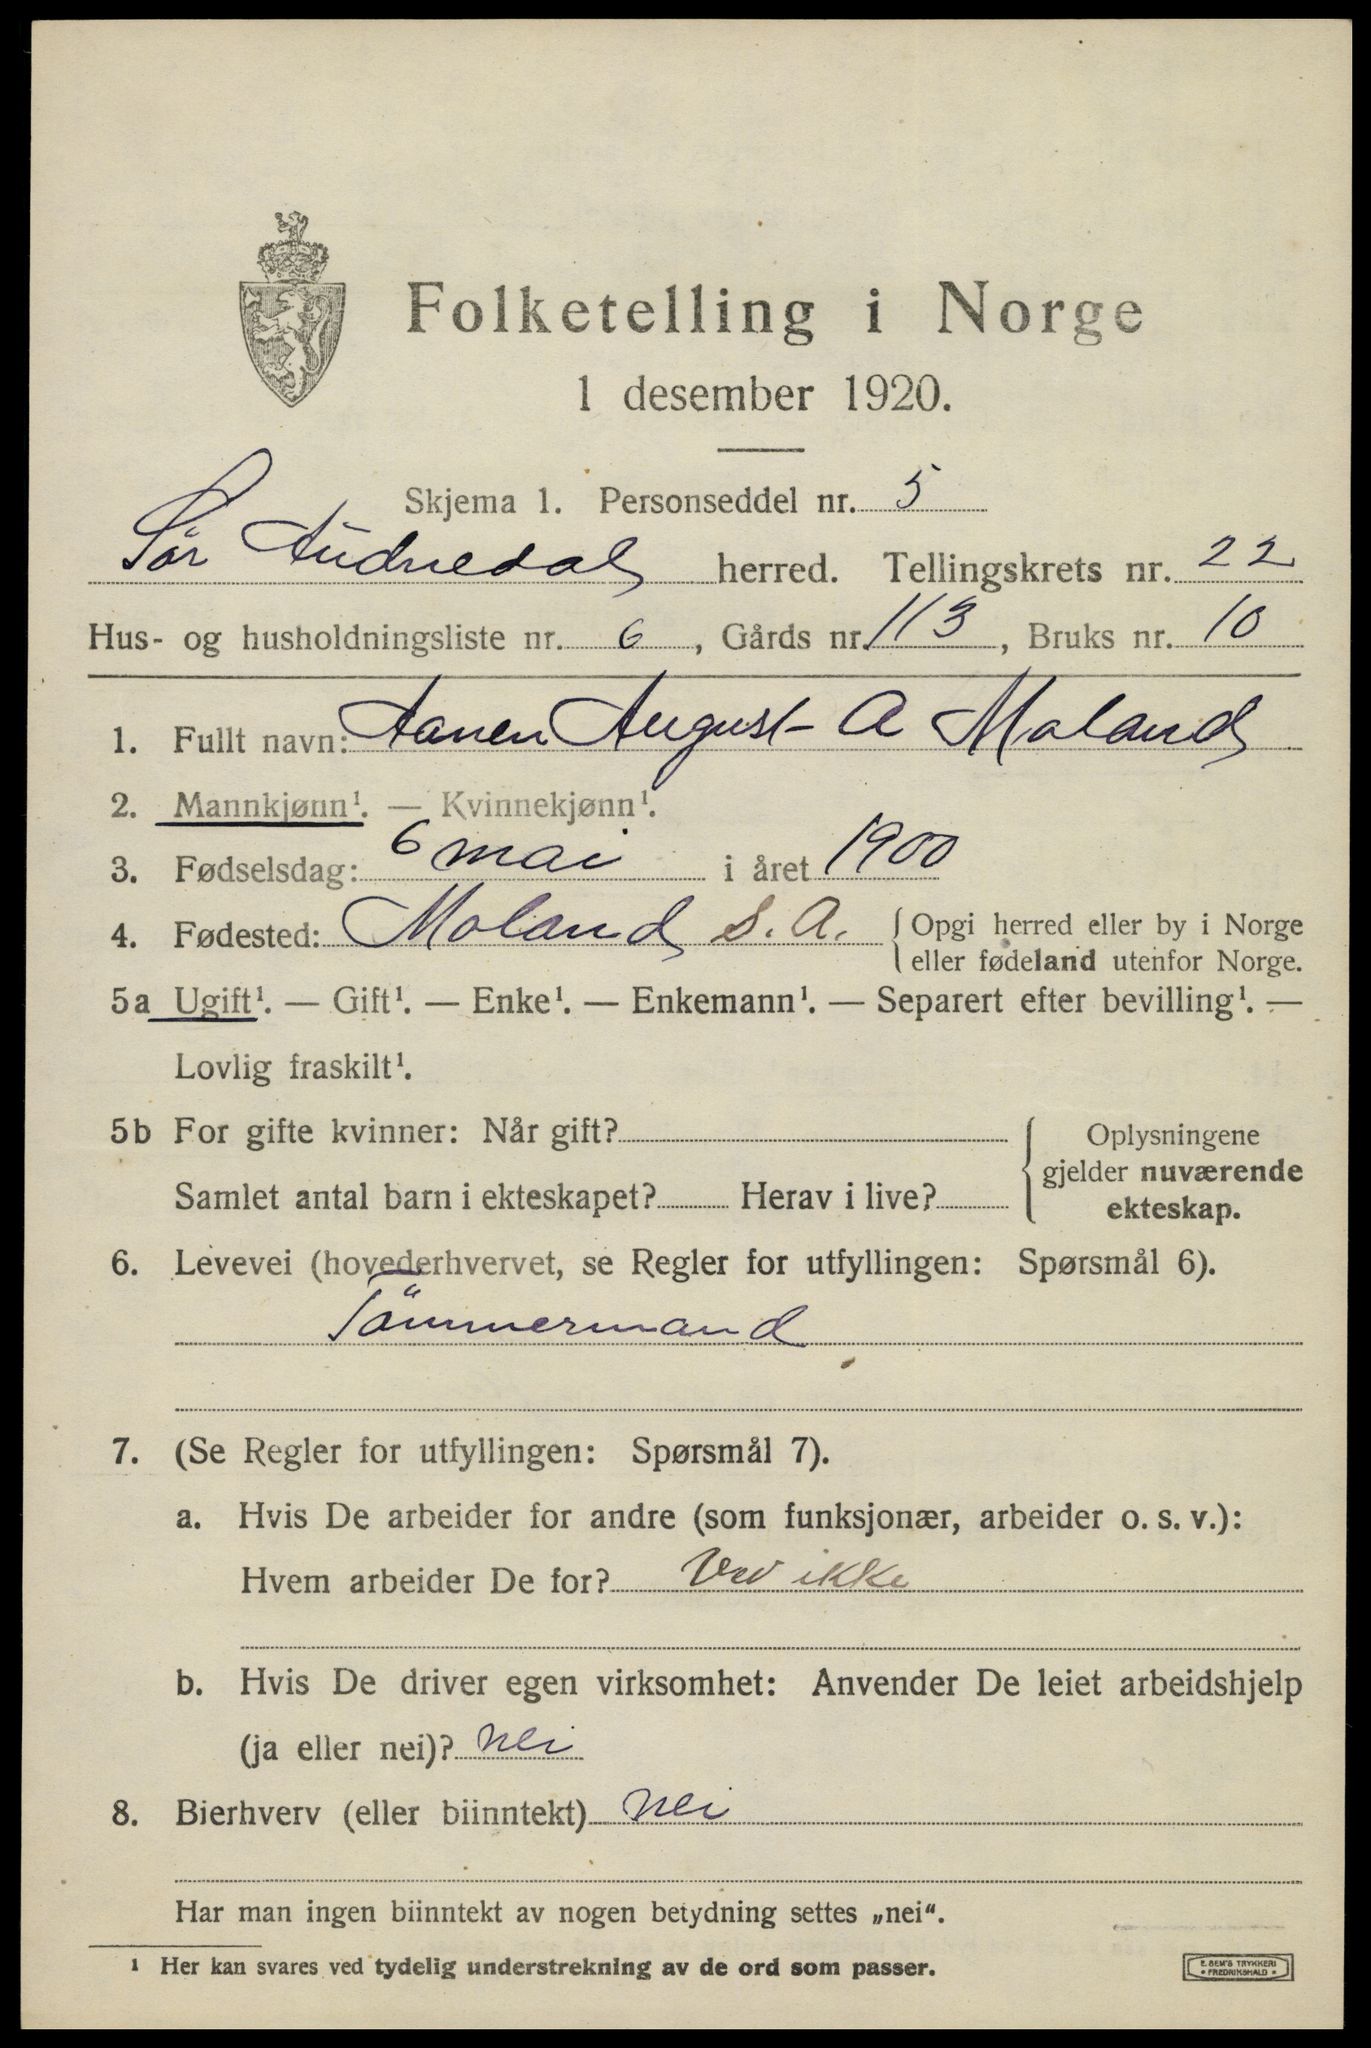 Folketelling i Norge
1 desember 1920.
Skjema 1. Personseddel nr. 5
Sör Audnedal herred. Tellingskrets nr. 22
Hus- og husholdningsliste nr. 6, Gårds nr. 113, Bruks nr. 10
1. Fullt navn: Aanen August A Moland
2. Mannkjønn¹. — Kvinnekjønn¹.
3. Fødselsdag: 6 mai i året 1900
4. Fødested: Moland S. A. { Opgi herred eller by i Norge
eller fødeland utenfor Norge.
5a Ugift¹. — Gift¹. — Enke¹. — Enkemann¹. — Separert efter bevilling¹. —
Lovlig fraskilt¹.
5b For gifte kvinner: Når gift?
Samlet antal barn i ekteskapet? Herav i live?
Oplysningene
gjelder nuværende
ekteskap.
6. Levevei (hovederhvervet, se Regler for utfyllingen: Spørsmål 6).
Tömmermand
7. (Se Regler for utfyllingen: Spørsmål 7).
a. Hvis De arbeider for andre (som funksjonær, arbeider o. s. v.):
Hvem arbeider De for? ikke
b. Hvis De driver egen virksomhet: Anvender De leiet arbeidshjelp
(ja eller nei)? nei
8. Bierhverv (eller biinntekt) nei
Har man ingen biinntekt av nogen betydning settes „nei“.
¹ Her kan svares ved tydelig understrekning av de ord som passer.
E. SEM'S TRYKKERI
• FREDRIKSHALD •